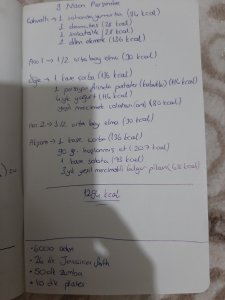 9 Nisan Perşembe
Kahvaltı → 1 yumurta (94 kcal)
1 domates (28 kcal)
1 salatalık (28 kcal)
2 dilim ekmek (136 kcal)
Ara 1 → 1/2 orta boy elma (30 kcal)
Öğle → 1 kase çorba (136 kcal)
1 porsiyon fırında patates (kcal)
4 yk yoğurt (kcal)
yeşil mercimek salatası (80 kcal)
ara 2 → 1/2 orta boy elma (30 kcal)
Akşam → 1 kase çorba (136 kcal)
90 gr haşlanmış et (207 kcal)
1 kase salata (kcal)
3 yk yeşil mercimekli bulgur pilavı (kcal)
kcal
• 6000 adım
• dk Jessica Smith
• 50 dk zumba
• 10 dk plates